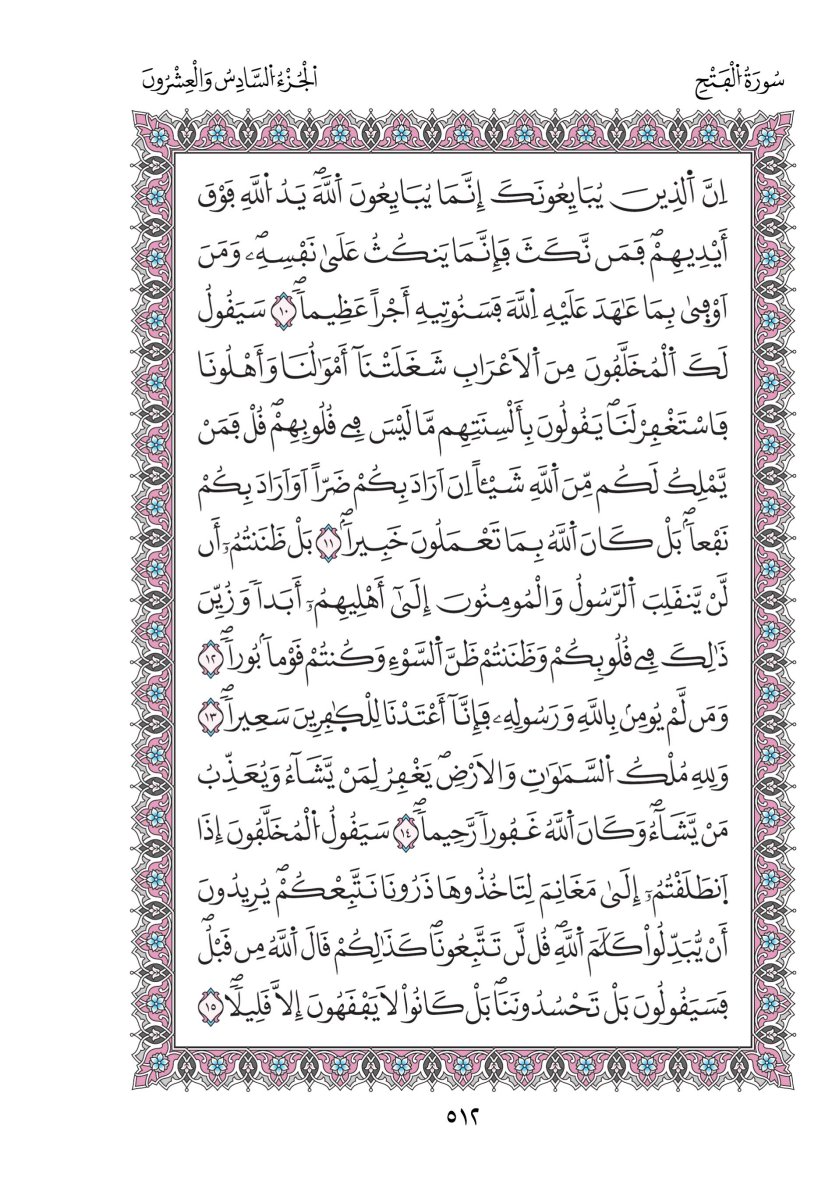 سُورَةُ اَلْفَتْحِ
اَلْجُزْءُ اَلسَّادِسُ وَالْعِشْرُونَ
اِنَّ اَلذِينَ يُبَايِعُونَكَ إِنَّمَا يُبَايِعُونَ اَللَّهَۖ يَدُ اُللَّهِ فَوْقَ
أَيْدِيهِمْۖ فَمَن نَّكَثَ فَإِنَّمَا يَنكُثُ عَلَىٰ نَفْسِهِۦۖ وَمَنَ
اَوْفىٰ بِمَا عَٰهَدَ عَلَيْهِ اِللَّهَ فَسَنُوتِيهِ أَجْراً عَظِيماًۖ ١٠ سَيَقُولُ
لَكَ اَلْمُخَلَّفُونَ مِنَ اَلَاعْرَابِ شَغَلَتْنَآ أَمْوَٰلُنَا وَأَهْلُونَا
فَاسْتَغْفِرْ لَنَاۖ يَقُولُونَ بِأَلْسِنَتِهِم مَّا لَيْسَ فِے قُلُوبِهِمْۖ قُلْ فَمَنْ
يَّمْلِكُ لَكُم مِّنَ اَللَّهِ شَيْـٔاً اِنَ اَرَادَ بِكُمْ ضَرّاً اَوَ اَرَادَ بِكُمْ
نَفْعاَۢۖ بَلْ كَانَ اَللَّهُ بِمَا تَعْمَلُونَ خَبِيراَۢۖ ١١ بَلْ ظَنَنتُمُۥٓ أَن
لَّنْ يَّنقَلِبَ اَلرَّسُولُ وَالْمُومِنُونَ إِلَىٰٓ أَهْلِيهِمُۥٓ أَبَداً وَزُيِّنَ
ذَٰلِكَ فِے قُلُوبِكُمْ وَظَنَنتُمْ ظَنَّ اَلسَّوْءِ وَكُنتُمْ قَوْماَۢ بُوراًۖ ١٢
وَمَن لَّمْ يُومِنۢ بِاللَّهِ وَرَسُولِهِۦ فَإِنَّآ أَعْتَدْنَا لِلْكٰ۪فِرِينَ سَعِيراًۖ ١٣
وَلِلهِ مُلْكُ اُلسَّمَٰوَٰتِ وَالَارْضِۖ يَغْفِرُ لِمَنْ يَّشَآءُ وَيُعَذِّبُ
مَنْ يَّشَآءُۖ وَكَانَ اَللَّهُ غَفُوراً رَّحِيماًۖ ١٤ سَيَقُولُ اُلْمُخَلَّفُونَ إِذَا
اَ۪نطَلَقْتُمُۥٓ إِلَىٰ مَغَانِمَ لِتَاخُذُوهَا ذَرُونَا نَتَّبِعْكُمْۖ يُرِيدُونَ
أَنْ يُّبَدِّلُواْ كَلَٰمَ اَللَّهِۖ قُل لَّن تَتَّبِعُونَاۖ كَذَٰلِكُمْ قَالَ اَللَّهُ مِن قَبْلُۖ
فَسَيَقُولُونَ بَلْ تَحْسُدُونَنَاۖ بَلْ كَانُواْ لَا يَفْقَهُونَ إِلَّا قَلِيلاًۖ ١٥
٥١٢